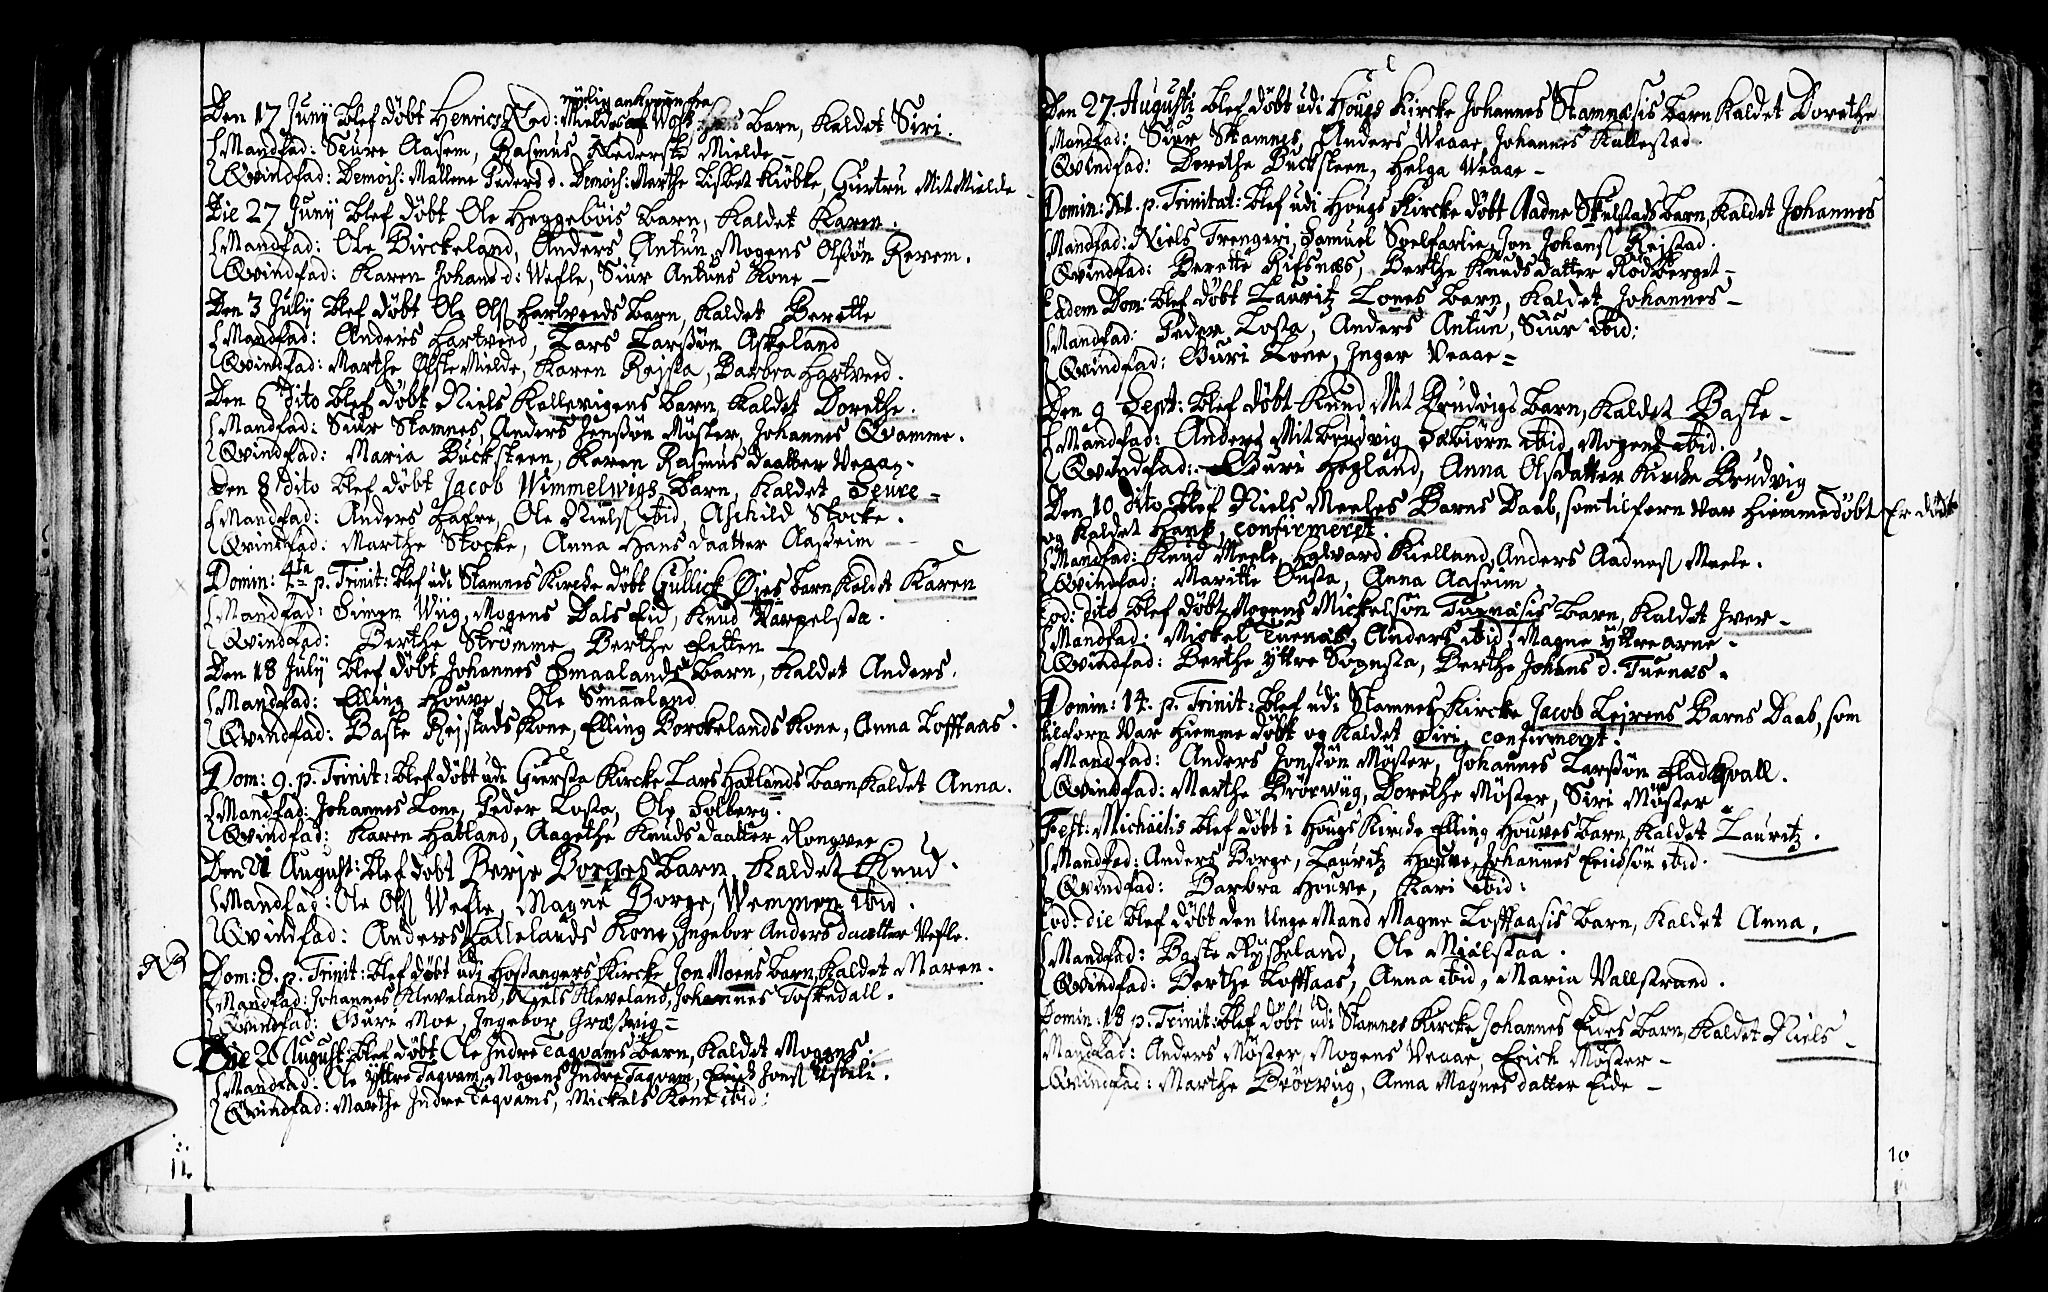 Den 17 Junij blef döbt Henrich Ned: Mieldes Barn, kaldet Siri.
Mandfad: Siure Aasem, Rasmus Nederste Mielde
Qvindfad: Demois: Mallene Peders d. Demois: Marthe Lisbet Kiöbke, Gurtru Mit Mielde
Die 27 Junij blef döbt Ole Heggeböis Barn, kaldet Karen.
Mandfad: Ole Birckeland, Anders Antun, Mogens Olssön Rerem.
Qvindfad: Karen Johans d: Wefle, Siur Antuns Kone
Den 3 Julij blef döbt Ole Olss Hartveeds Barn, kaldet Berette
Mandfad: Anders Hartveed, Lars Larssön Askeland
Qvindfad: Marthe Öfste Mielde, Karen Reista, Barbra Hartveed.
Den 6 dito blef döbt Niels Kallevigens Barn, kaldet Dorethe.
Mandfad: Siur Stamnes, Anders Jenssön Möster, Johannes Qvamme.
Qvindfad: Maria Bucksteen, Karen Rasmus daatter Veaae.
Den 8 dito blef döbt Jacob Wimmelwigs Barn, kaldet Seure
Mandfad: Anders Lafre, Ole Nielss ibid, Aschild Stocke.
Qvindfad: Marthe Stocke, Anna Hans daatter Aasheim
Domin: 4ta p. Trinit: blef udi Stamnes Kircke döbt Gullick Öies barn kaldet Karen
Mandfad: Simen Wiig, Mogens Dals Eid, Knud Varpelsta.
Qvindfad: Berthe Strömme, Berthe Fetten
Den 18 Julij blef döbt Johannes Smaalands Barn, kaldet Anders.
Mandfad: Elling Houve, Ole Smaaland
Qvindfad: Baste Rejstads Kone, Elling Borckelands Kone, Anna Lofftaas.
Dom: 9. p. Trinit: blef döbt udi Giersta Kircke Lars Hatlands Barn, kaldet Anna.
Mandfad: Johannes Lone, Peder Losta, Ole Solberg.
Qvindfad: Karen Hatland, Aagethe Knuds daatter Rongvee
Den 21 August: blef döbt Berje Borges Barn, kaldet Knud.
Mandfad: Ole Olss Wefle, Magne Borge, Wemmen ibid.
Qvindfad: Anders Hallelands Kone, Ingebor Anders daatter Vefle.
NB
Dom: 8. p. Trinit: blef döbt udi Hosangers Kircke Jon Moens barn, kaldet Maren.
Mandfad: Johannes Kleveland, Niels Kleveland, Johannes Toskedall.
Qvindfad: Guri Moe, Ingebor Græsvig
Die 26 August: blef döbt Ole Indre Taqvams Barn, kaldet Mogens.
Mandfad: Ole Yttre Taqvam, Mogens Indre Taqvam, Erich Jonss
Qvindfad: Marthe Indre Taqvams, Mickels Kone ibid:
11.
Den 27. Augusti blef döbt udi Hougs Kircke Johannes Stamnæsis barn, kaldet Dorethe
Mandfad: Siur Stamnes, Anders Weaae, Johannes Kallestad
Qvindfad: Dorethe Bucksteen, Helga Weaae
Domin: XI. p. Trinitat: blef udi Hougs Kircke döbt Aadne Skulstads barn, kaldet Johannes
Mandfad: Niels Trengeri, Samuel Soelfarlie, Jon Johanss Rejstad.
Qvindfad: Berette Rifsnæs, Berthe Knuds datter Rödberget
Eadem Dom: blef döbt Lauritz Lones Barn, kaldet Johannes
Mandfad: Peder Losta, Anders Antun, Siur ibid:
Qvindfad: Guri Lone, Inger Veaae
Den 9 Sept: blef döbt Knud Mit Brudvigs barn, kaldet Baste
Mandfad: Anders Mit brudvig, ibid, Mogens ibid.
Qvindfad: Guri Hegland, Anna Olsdatter Kircke Brudvig
Den 10 dito blef Niels Meeles Barns Daab, som tilforn var hiemmedöbt Er död
og kaldet Hans, confirmeret.
Mandfad: Knud Meele, Halvard Kielland, Anders Aadness Meele.
Qvindfad: Maritte Önsta, Anna Aaseim
Eod: dito blef döbt Mogens Mickelsön Tuenæsis Barn, kaldet Iver
Mandfad: Mickel Tuenæs, Anders ibid, Magne Yttre arne
Qvindfad: Berthe Yttre Songsta, Berthe Johans d. Tuenæs.
Domin: 14. p. Trinit: blef udi Stamnes Kircke Jacob Leirens Barns Daab, som
tilforn var Hiemme döbt og kaldet Siri, confirmeret.
Mandfad: Anders Jonssön Möster, Johannes Larssön Fladqvall.
Qvindfad: Marthe Brörwiig, Dorethe Möster, Siri Möster
Fest: Michaelis blef döbt i Hougs Kircke Elling Houves barn, kaldet Lauritz.
Mandfad: Anders Borge, Lauritz Houve, Johannes Erichsön ibid.
Qvindfad: Barbra Houve, Kari ibid:
Eod: die blef döbt den unge Mand Magne Lofftaasis barn, kaldet Anna.
Mandfad: Baste Ryskeland, Ole Mielstaa.
Qvindfad: Berthe Lofftaas, Anna ibid, Maria Vallestrand.
Domin: 18 p. Trinit: blef döbt udi Stamnes Kircke Johannes Eides barn, kaldet Niels
Mandfad: Anders Möster, Mogens Veaae, Erich Möster
Qvindfad: Marthe Brörwiig, Anna Magnes datter Eide
10